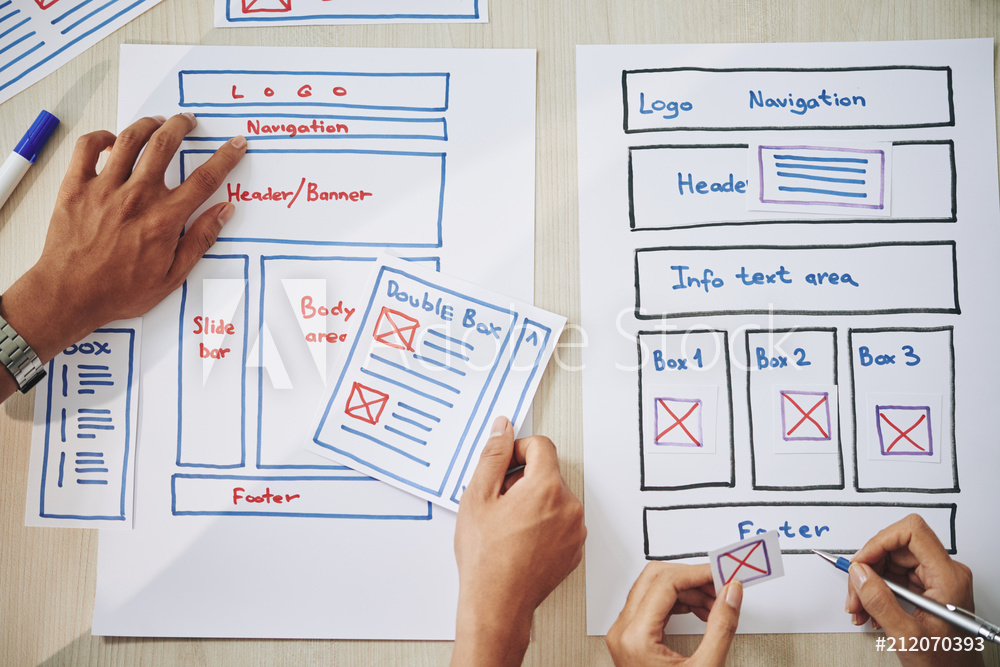 LOGO
Navigation
Header/Banner
Slide
bar
Body
area
Footer
BOX
Double Box
Logo Navigation
Heade
Info text area
Box 1
Box 2
Box 3
Footer
Adobe Stock
#212070393